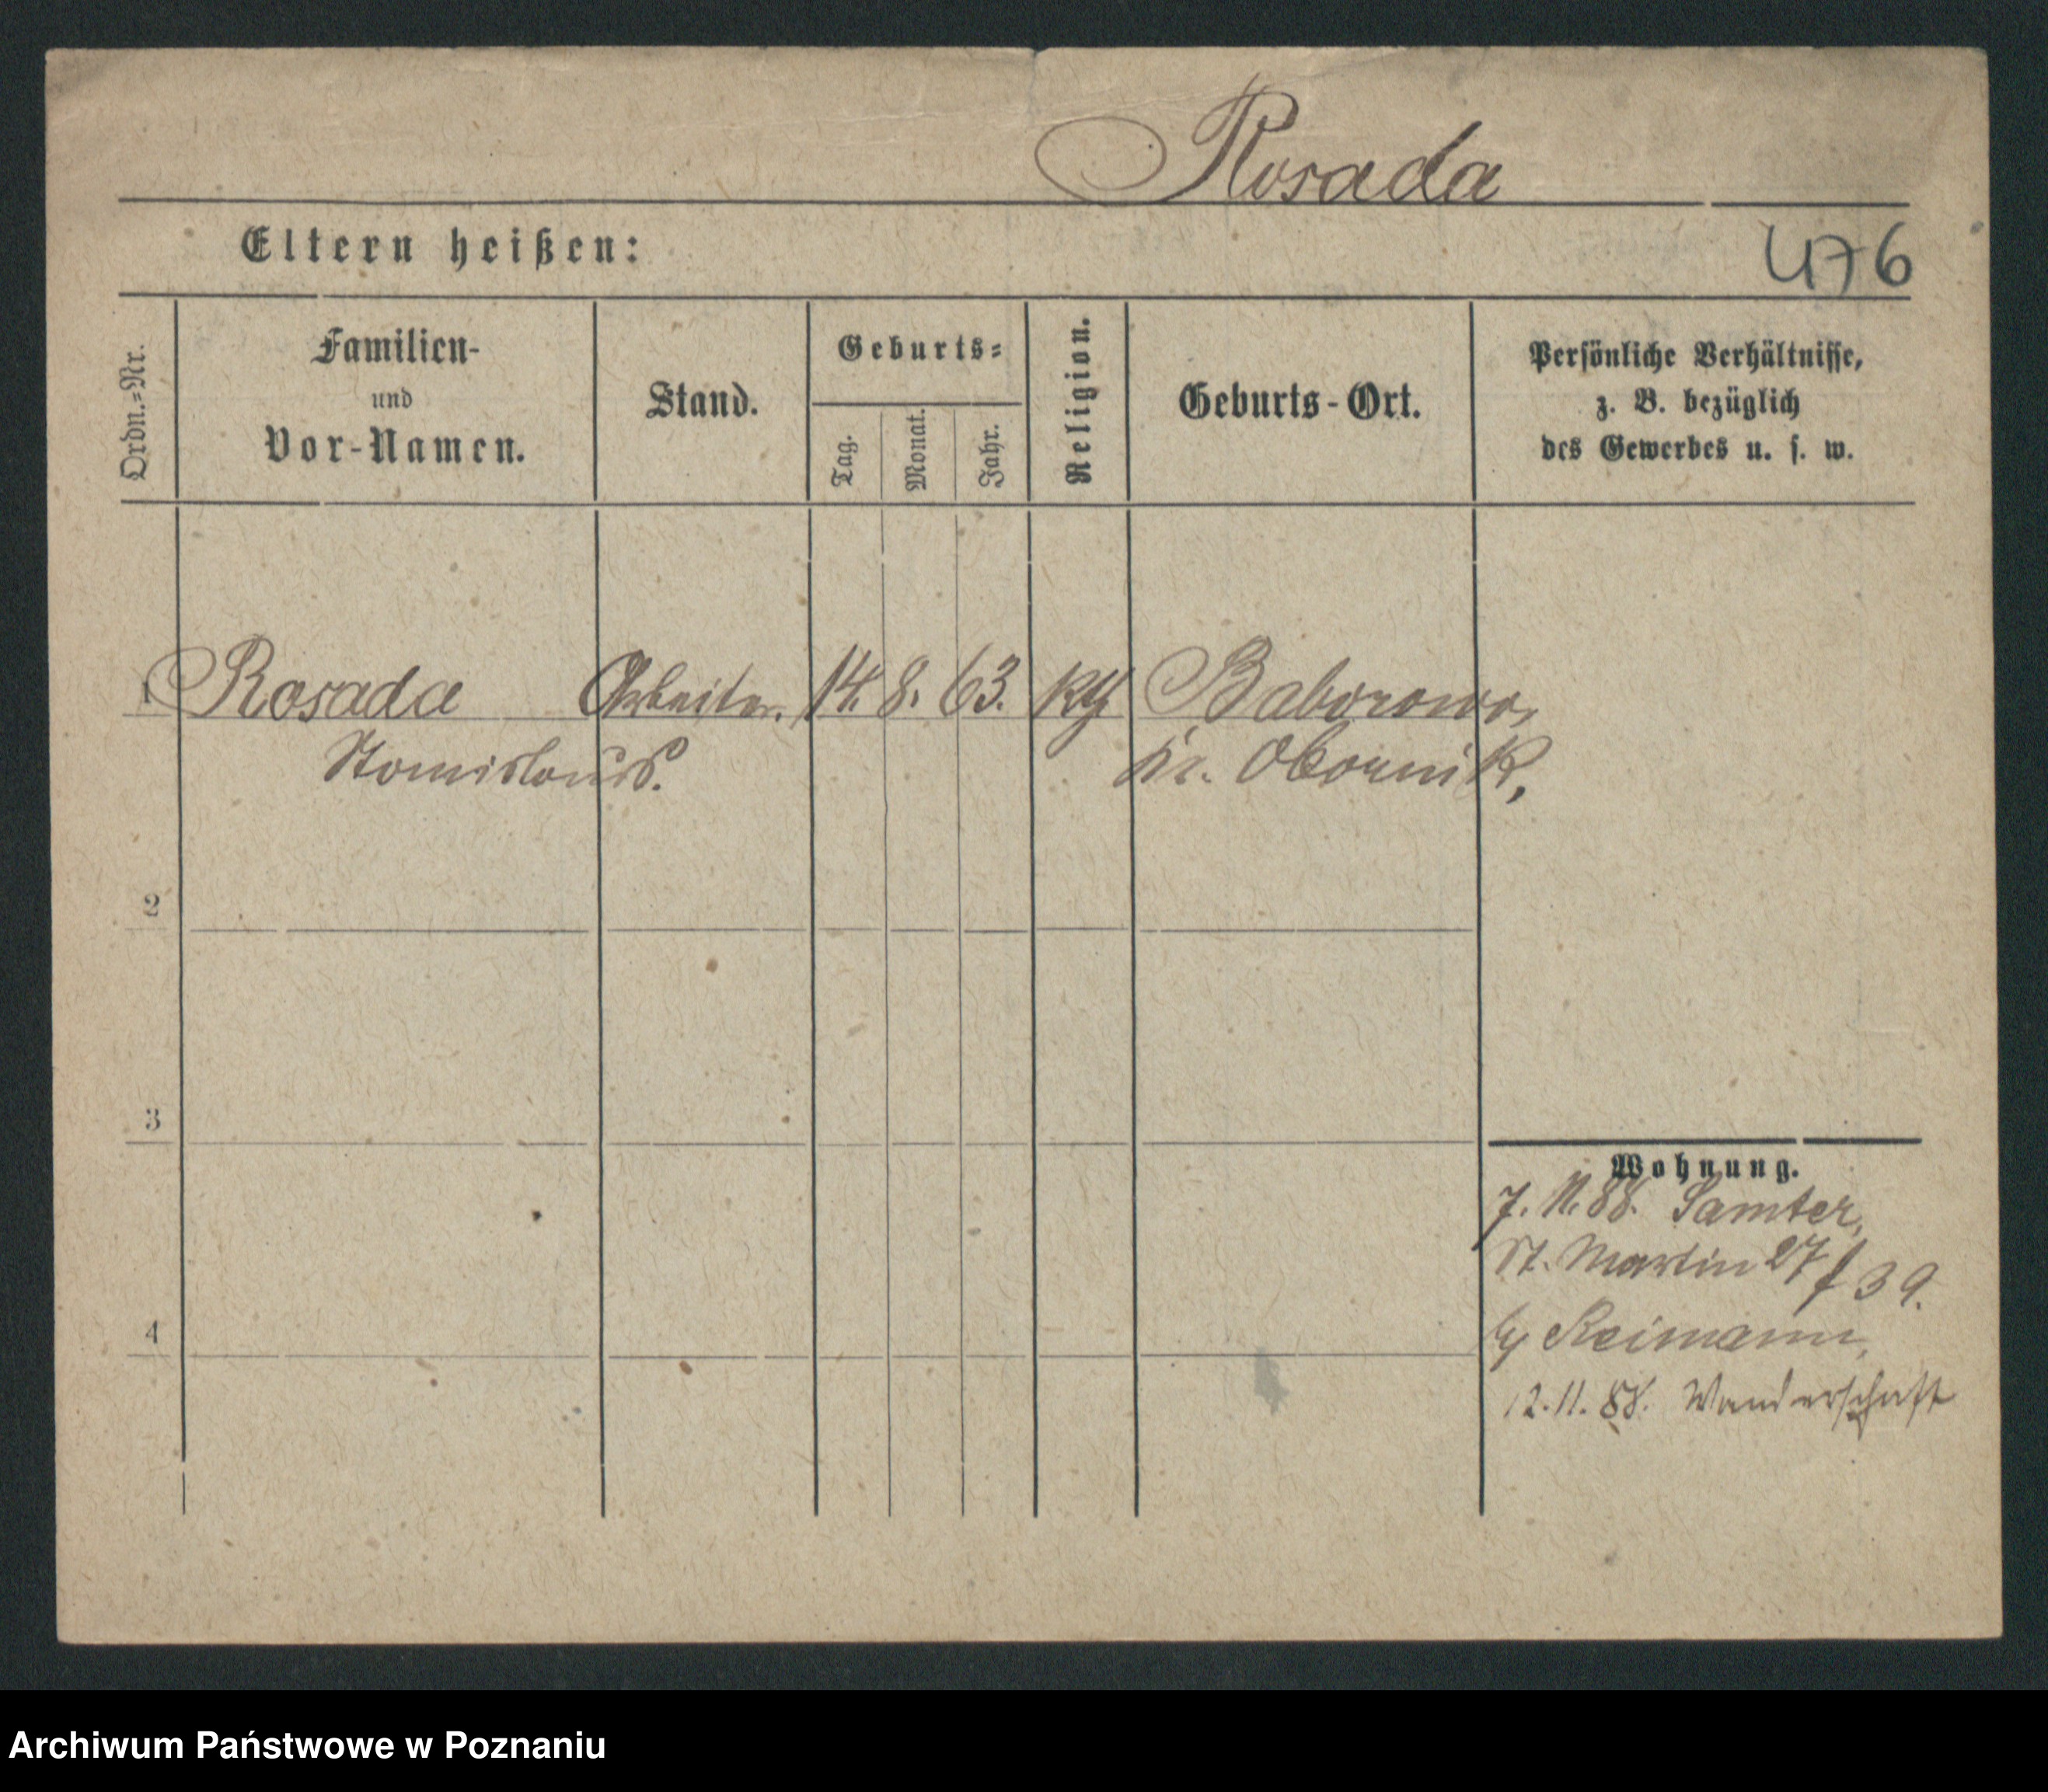 Rosada
Eltern heißen:
476
Ordn.-Nr.
Familien-
und
Vor-Namen.
Stand.
Geburts-
Tag.
Monat.
Jahr.
Religion.
Geburts-Ort.
Persönliche Verhältnisse,
z. B. bezüglich
des Gewerbes u. s. w.
1 Rosada Arbeiter. 14. 8. 63. Baborowo,
Stanislaus. Kr. Obornik,
2
3
4
Wohnung.
7. 11. 88. Samter,
St. Martin 27 f 39.
Reimann,
12. 11. 88. Wanderschaft
Archiwum Państwowe w Poznaniu